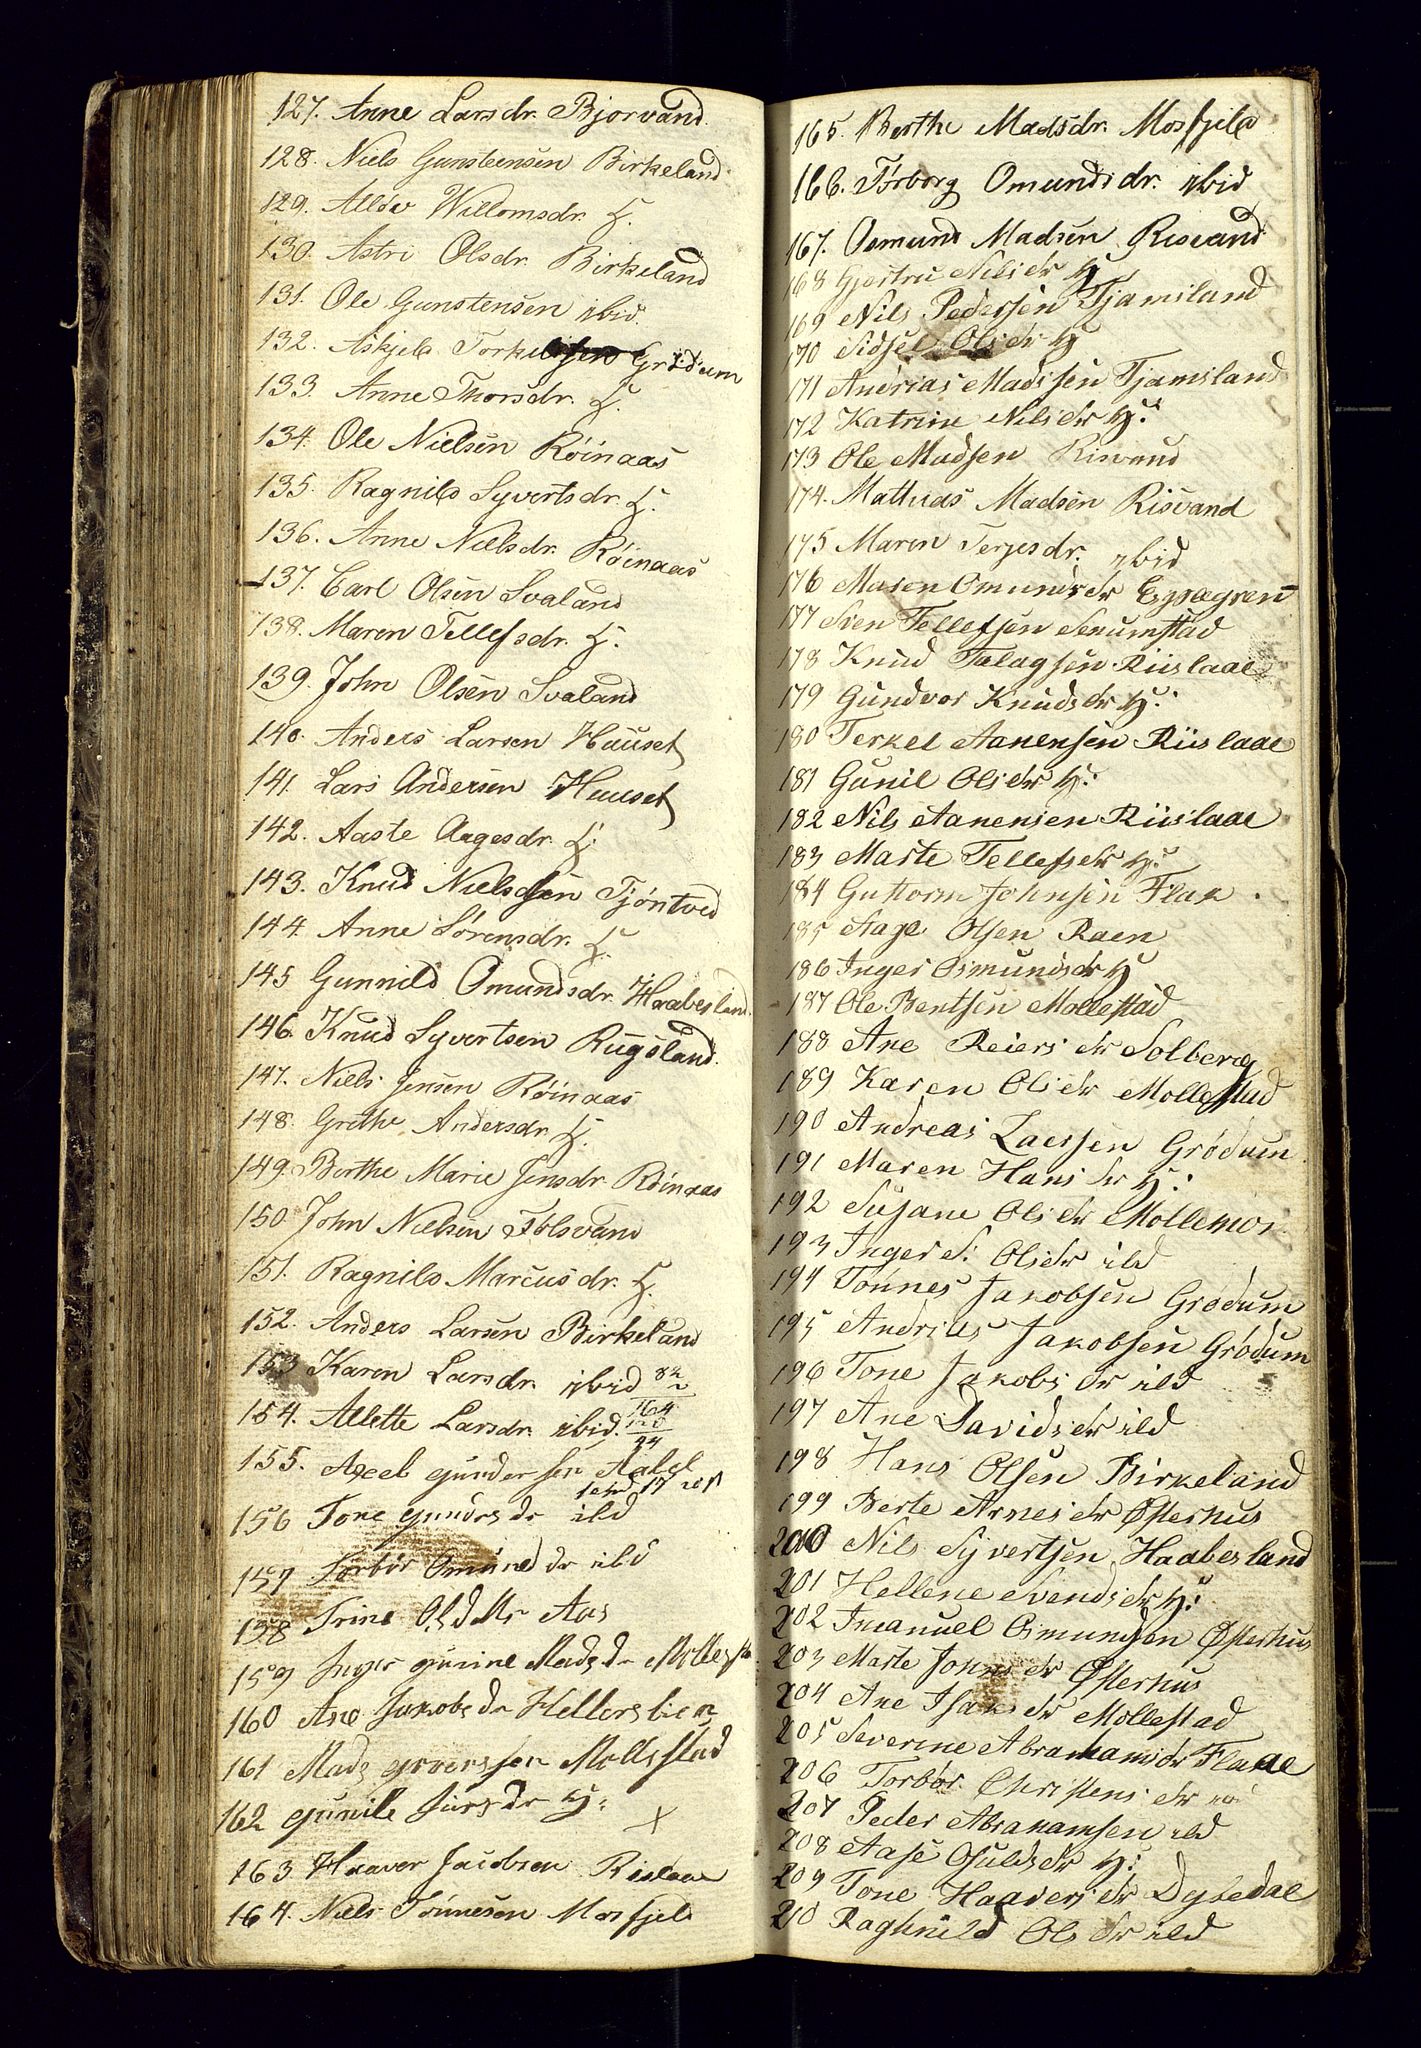 127. Anne Larsdr. Bjorvand.
128. Niels Gunsteensen Birkeland
129. Allow Willomsdr. H.
130. Astri Olsdr. Birkeland
131. Ole Gunstensen ibid.
132. Askjeld Torkelsen Grødum
133. Anne Thorsdr. H.
134. Ole Nielsen Röinaas
135. Ragnild Syvertsdr. H.
136. Anne Nielsdr. Röinaas
137. Carl Olsen Svaland
138. Maren Tellefsdr. H.
139. John Olsen Svaland
140. Anders Larsen Hauset
141. Lars Andersen Hauset
142. Aaste Aagesdr. H.
143. Knud Nielsen Tjöntved
144. Anne Sörensdr. H.
145 Gunnild Omundsdr. Haabesland.
146. Knud Syvertsen Rugsland.
147. Niels Jensen Röinaas
148. Grethe Andersdr. H.
149. Berthe Marie Jensdr. Röinaas
150 John Nielsen Fölsvand
151. Ragnild Marcusdr. H.
152. Anders Larsen Birkeland
153 Karen Larsdr. ibid 82
2
154. Allette Larsdr. ibid. 164
120
44
155. Axel Gundersen
17
156 Tone Gundrsdr ibd
157 Torbör Omundsdr ibd
158 Trine Olsdtr Aas
159 Inger Gunine Madsdr Mollest
160 Ane Jakobsdr Hellerslien
161 Mads Groversen Mollestad
162 Gunile Jursdr H: x
163 Haaver Jacobsen Rislaa
164. Niels Tönnesen Mosfjeld
165. Berthe Madsdr. Mosfjeld
166. Törborg Omundsdr. ibid
167. Osmund Madsen Risvand
168 Gjertru Nilsdr H
169 Nils Pedersen Tjamsland
170 Sidsel Olsdr H
171 Andrias Madssen Tjamsland
172 Katrine Nilsdr H:
173 Ole Madsen Risvand
174. Mathias Madsen Risvand
175 Maren Terjesdr. ibid
176 Maren Omundsdr Eppegren
177 Sven Tellefsen Senumstad
178 Knud Falagsen Riislaae
179 Gundvor Knudsdr H:
180 Terkel Aanensen Riislaae
181 Gunil Olsdr H:
182 Nils Aanensen Riislaae
183 Marte Tellefsdr H:
184 Guttorm Johnsen Flak
185 Aage Olsen Raen
186 Inger Osmundsdr H
187 Ole Bentsen Mollestad
188 Ane Reiersdr Solberg
189 Karen Olsdr Mollestad
190 Andreas Larsen Grödum
191 Maren Hansdr H:
192 Susane Olsdr Mollemos
193 Inger S: Olsdr ibd
194 Tönnes Jakobsen Grödum
195 Andrias Jakobsen Grödum
196 Tone Jakobsdr ibd
197 Ane Davidsdr ibd
198 Hans Olsen Birkeland
199 Berte Arnesdr Østerhus
200 Nils Syvertsen Haabesland
201 Hellene Svendsdr H:
202 Imanuel Osmundsen Østerhus
203 Marte Johnsdr Østerhus
204 Ane Isaksdr Mollestad
205 Severine Abrahamsdr Flaae
206 Torbör Christensdr ibd
207 Peder Abrahamsen ibd
208 Aase Osuldsdr H:
209 Tone Haaversdr Dybedal
210 Raghnild Olsdr ibd